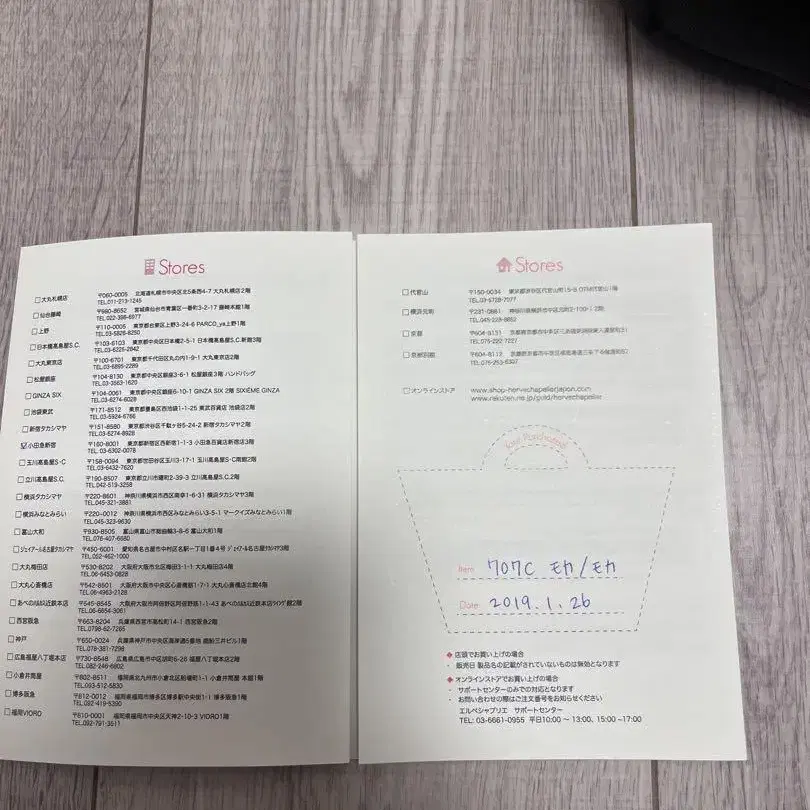 Stores
大丸札幌店 〒060-0005 北海道札幌市中央区北5条西4-7 大丸札幌店2階
TEL.011-213-1245
仙台藤崎 〒980-8652 宮城県仙台市青葉区一番町3-2-17 藤崎本館1階
TEL.022-398-6977
上野 〒110-0005 東京都台東区上野3-24-6 PARCO_ya上野1階
TEL.03-5826-8250
日本橋髙島屋S.C. 〒103-6103 東京都中央区日本橋2-5-1 日本橋髙島屋S.C.新館3階
TEL.03-6225-2642
大丸東京店 〒100-6701 東京都千代田区丸の内1-9-1 大丸東京店2階
TEL.03-6895-2289
松屋銀座 〒104-8130 東京都中央区銀座3-6-1 松屋銀座3階 ハンドバッグ
TEL.03-3563-1620
GINZA SIX 〒104-0061 東京都中央区銀座6-10-1 GINZA SIX 2階 SIXIÈME GINZA
TEL.03-6274-6028
池袋東武 〒171-8512 東京都豊島区西池袋1-1-25 東武百貨店 池袋店2階
TEL.03-5924-6766
新宿タカシマヤ 〒151-8580 東京都渋谷区千駄ヶ谷5-24-2 新宿タカシマヤ2階
TEL.03-6274-8928
小田急新宿 〒160-8001 東京都新宿区西新宿1-1-3 小田急百貨店新宿店3階
TEL.03-6302-0078
玉川髙島屋S・C 〒158-0094 東京都世田谷区玉川3-17-1 玉川髙島屋S・C南館2階
TEL.03-6432-7620
立川髙島屋S.C. 〒190-8507 東京都立川市曙町2-39-3 立川髙島屋S.C.2階
TEL.042-519-3258
横浜タカシマヤ 〒220-8601 神奈川県横浜市西区南幸1-6-31 横浜タカシマヤ3階
TEL.045-321-3881
横浜みなとみらい 〒220-0012 神奈川県横浜市西区みなとみらい3-5-1 マークイズみなとみらい1階
TEL.045-323-9630
富山大和 〒930-8505 富山県富山市総曲輪3-8-6 富山大和1階
TEL.076-407-6680
ジェイアール名古屋タカシマヤ 〒450-6001 愛知県名古屋市中村区名駅一丁目1番4号 ジェイアール名古屋タカシマヤ3階
TEL.052-462-1000
大丸梅田店 〒530-8202 大阪府大阪市北区梅田3-1-1 大丸梅田店4階
TEL.06-6453-0828
大丸心斎橋店 〒542-8501 大阪府大阪市中央区心斎橋筋1-7-1 大丸心斎橋店北館4階
TEL.06-4963-2128
あべのハルカス近鉄本店 〒545-8545 大阪府大阪市阿倍野区阿倍野筋1-1-43 あべのハルカス近鉄本店ウイング館2階
TEL.06-6654-3061
西宮阪急 〒663-8204 兵庫県西宮市高松町14-1 西宮阪急2階
TEL.0798-62-7265
神戸 〒650-0024 兵庫県神戸市中央区海岸通5番地 商船三井ビル1階
TEL.078-381-7298
広島福屋八丁堀本店 〒730-8548 広島県広島市中区胡町6-26 福屋八丁堀本店2階
TEL.082-246-6802
小倉井筒屋 〒802-8511 福岡県北九州市小倉北区船場町1-1 小倉井筒屋 本館1階
TEL.093-512-5830
博多阪急 〒812-0012 福岡県福岡市博多区博多駅中央街1-1 博多阪急1階
TEL.092-419-5390
福岡VIORO 〒810-0001 福岡県福岡市中央区天神2-10-3 VIORO1階
TEL.092-791-3511
Stores
代官山 〒150-0034 東京都渋谷区代官山町
TEL.03-5728-7077
横浜元町 〒231-0861 神奈川県横浜市中区元町2-100-1 2階
TEL.045-228-8852
京都 〒604-8131
TEL.075-222-7227
京都別館 〒604-8112
TEL.075-253-6287
オンラインストア www.shop-hervechapelierjapon.com
www.rakuten.ne.jp/gold/hervechapelier
Item 707C モカ/モカ
Date 2019.1.26
◆ 店頭でお買い上げの場合
・ 販売日 製品名の記載がされていないものは無効となります
◆ オンラインストアでお買い上げの場合
・ サポートセンターのみでの対応となります
・ お問い合わせの際はご注文番号をお知らせください
エルベシャプリエ サポートセンター
TEL: 03-6661-0955 平日10:00 〜 13:00、15:00 〜17:00